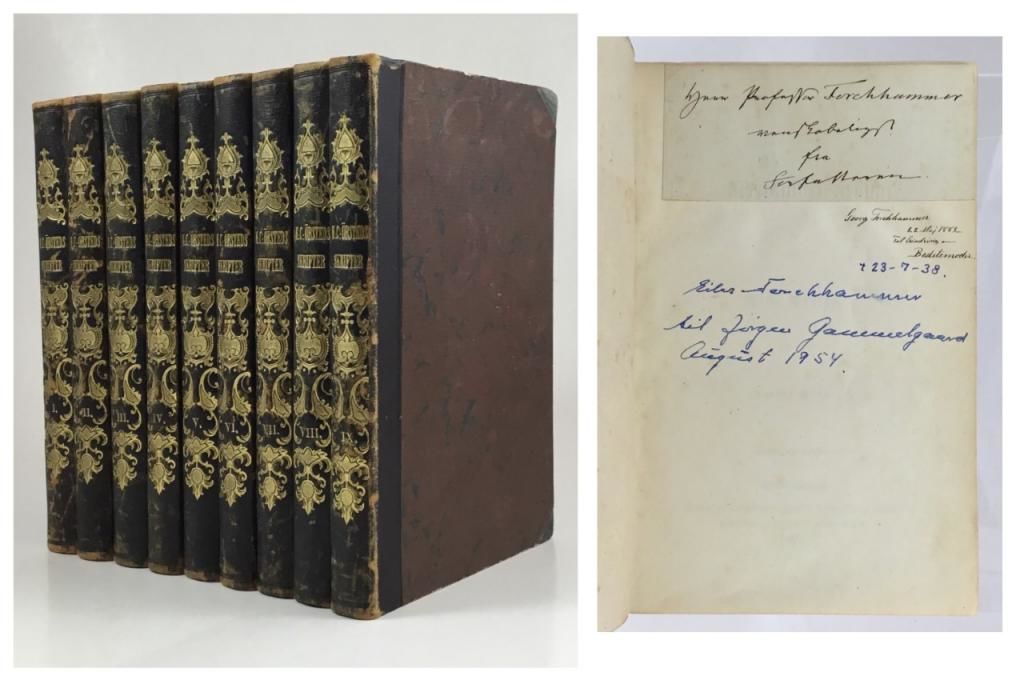 H.C. ÖRSTEDS
SKRIFTER
I.
H.C. ÖRSTEDS
SKRIFTER
II.
H.C. ÖRSTEDS
SKRIFTER
III.
H.C. ÖRSTEDS
SKRIFTER
IV.
H.C. ÖRSTEDS
SKRIFTER
V.
H.C. ÖRSTEDS
SKRIFTER
VI.
H.C. ÖRSTEDS
SKRIFTER
VII.
H.C. ÖRSTEDS
SKRIFTER
VIII.
H.C. ÖRSTEDS
SKRIFTER
IX.
Herr Professor Forchhammer
venskabeligst
fra
Forfatteren.
Georg Forchhammer
22 Maj
Til
Bedstemoder.
† 23-7-38.
Forchhammer
til Jørgen Gammelgaard
August 1954.